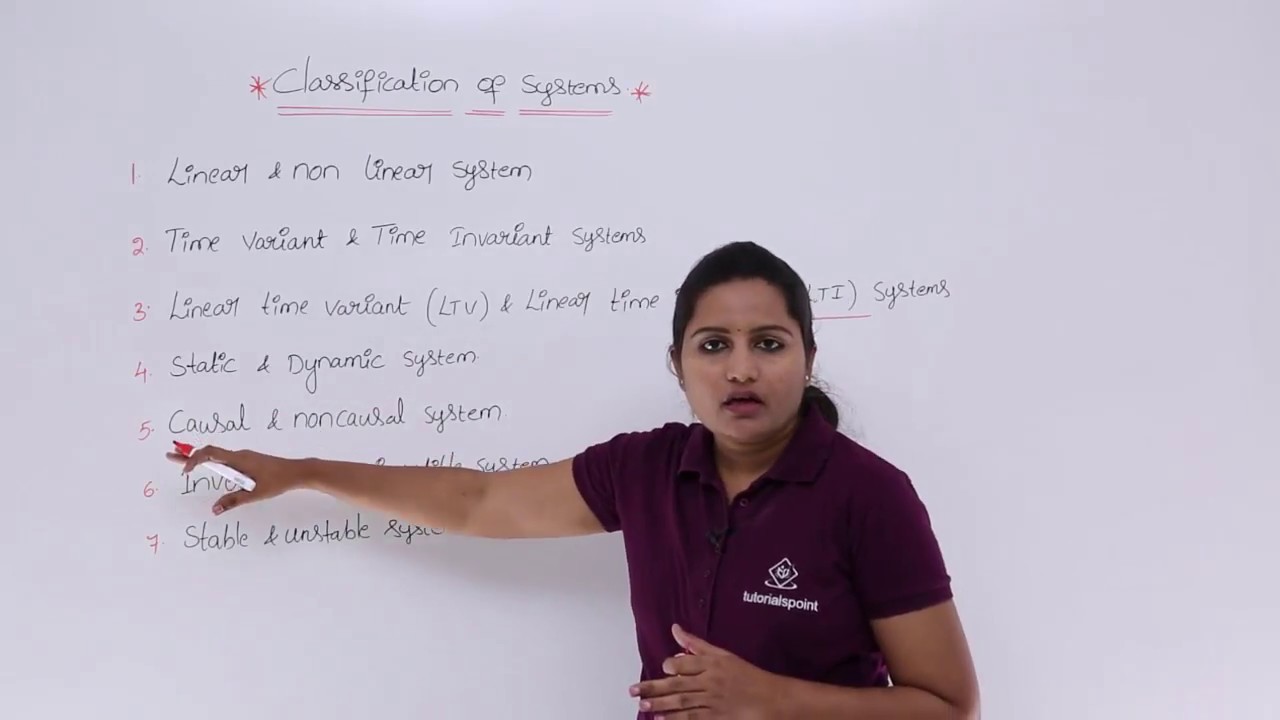 * Classification of Systems. *
1. Linear & non linear system
2. Time variant & Time Invariant systems
3. Linear time variant (LTV) & Linear time LTI) systems
4. Static & Dynamic system.
5. Causal & noncausal system.
6. system
7. Stable & unstable
tutorialspoint